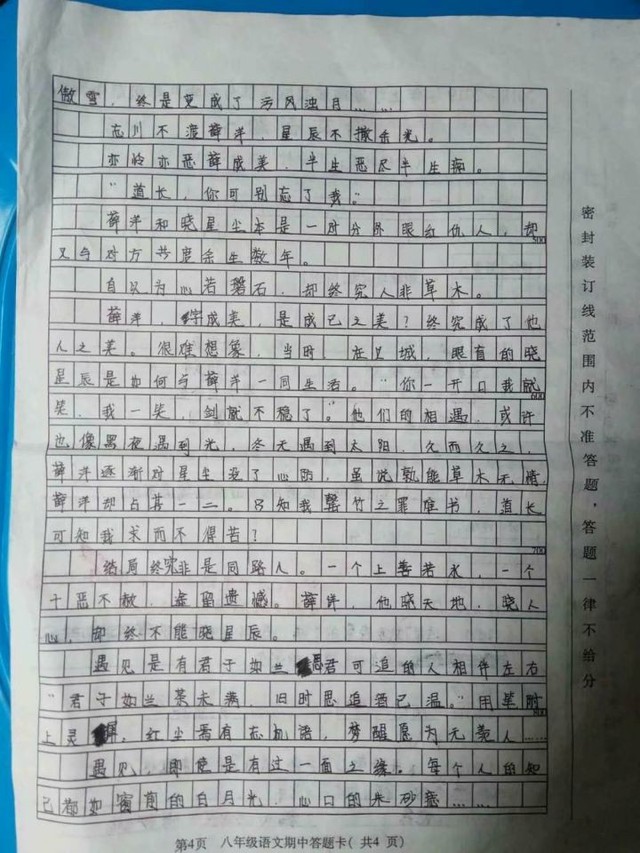 傲雪，终是变成了污风浊月……
忘川不渡薛洋，星辰不撒余光。
亦怜亦恶薛成美，半生恶尽半生痴。
“道长，你可别忘了我。”
薛洋和晓星尘本是一对分外眼红仇人，却
500
又与对方共度余生数年。
自以为心若磐石，却终究人非草木。
薛洋，字成美，是成己之美？终究成了他
人之美。很难想象，当时，在义城，眼盲的晓
星辰是如何与薛洋一同生活。“你一开口我就
600
笑，我一笑，剑就不稳了。”他们的相遇，或许
也像黑夜遇到光，冬天遇到太阳，久而久之，
薛洋逐渐对星尘没了心防，虽说孰能草木无情
薛洋却占其一二。只知我罄竹之罪难书，道长
可知我求而不得苦？
700
结局终究非是同路人。一个上善若水，一个
十恶不赦，空留遗憾。薛洋，他晓天地，晓人
心，却终不能晓星辰。
遇见是有君子如兰 君可追的人相伴左右
“君子如兰茶未满，旧时思追酒已温。”用笔时
800
上灵 ，红尘焉有忘机语，梦醒愿为无羡人……
遇见，即使是有过一面之缘。每个人的知
己都如窗前的白月光，心口的朱砂痣……
第4页 八年级语文期中答题卡（共4页）
密封装订线范围内不准答题，答题一律不给分